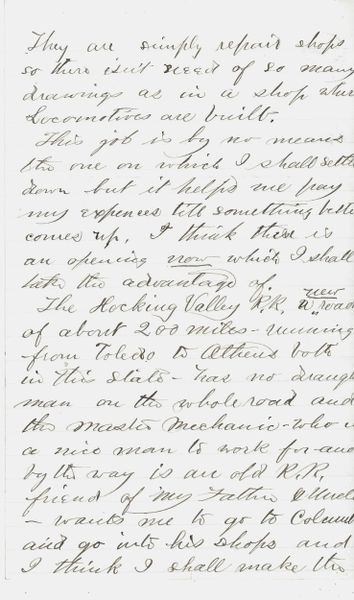 They are simply repair shops
so there isn't need of so many
drawings as in a shop where
Locomotives are built.
This job is by no means
the one on which I shall settle
down but it helps me pay
my expences till something better
comes up. I think there is
an opening now which I shall
take the advantage of.
The Hocking Valley R.R. a new road
of about 200 miles - running
from Toledo to Athens both
in this State - has no draught
man on the whole road and
the Master Mechanic - who is
a nice man to work for - and
by the way is an old R.R.
friend of my Father &
- wants me to go to Columb
and go into his shops and
I think I shall make the